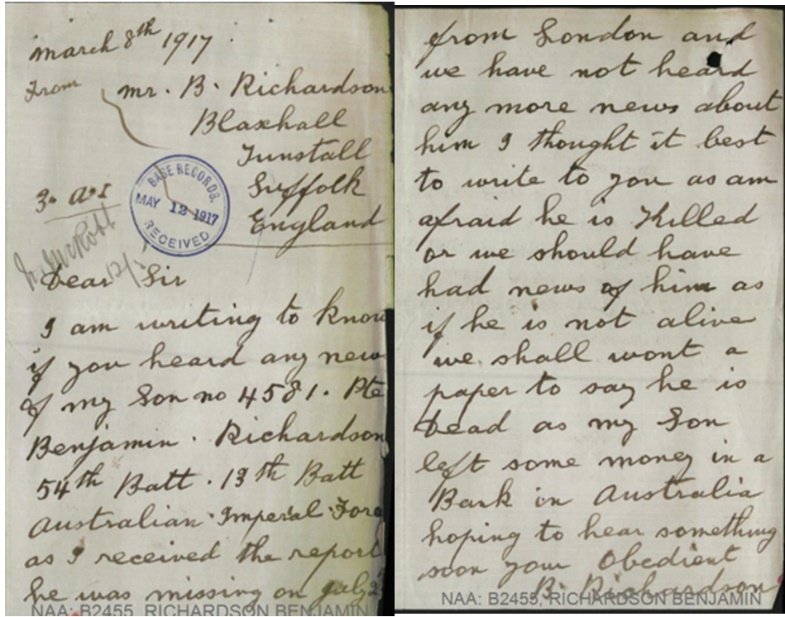 march 8th 1917
From mr. B. Richardson
Blaxhall
Tunstall
Suffolk
England
BASE RECORDS.
MAY 12 1917
RECEIVED
Dear Sir
I am writing to know
if you heard any new
of my Son no 4581. Pte
Benjamin. Richardson
54th Batt. 13th Batt
Australian. Imperial. For
as I received the report
he was missing on July
NAA: B2455, RICHARDSON BENJAMIN
from London and
we have not heard
any more news about
him I thought it best
to write to you as am
afraid he is Killed
or we should have
had news of him as
if he is not alive
we shall wont a
paper to say he is
Dead as my Son
left some money in a
Bank in Australia
hoping to hear something
soon your Obedient
B. Richardson
NAA: B2455, RICHARDSON BENJAMIN